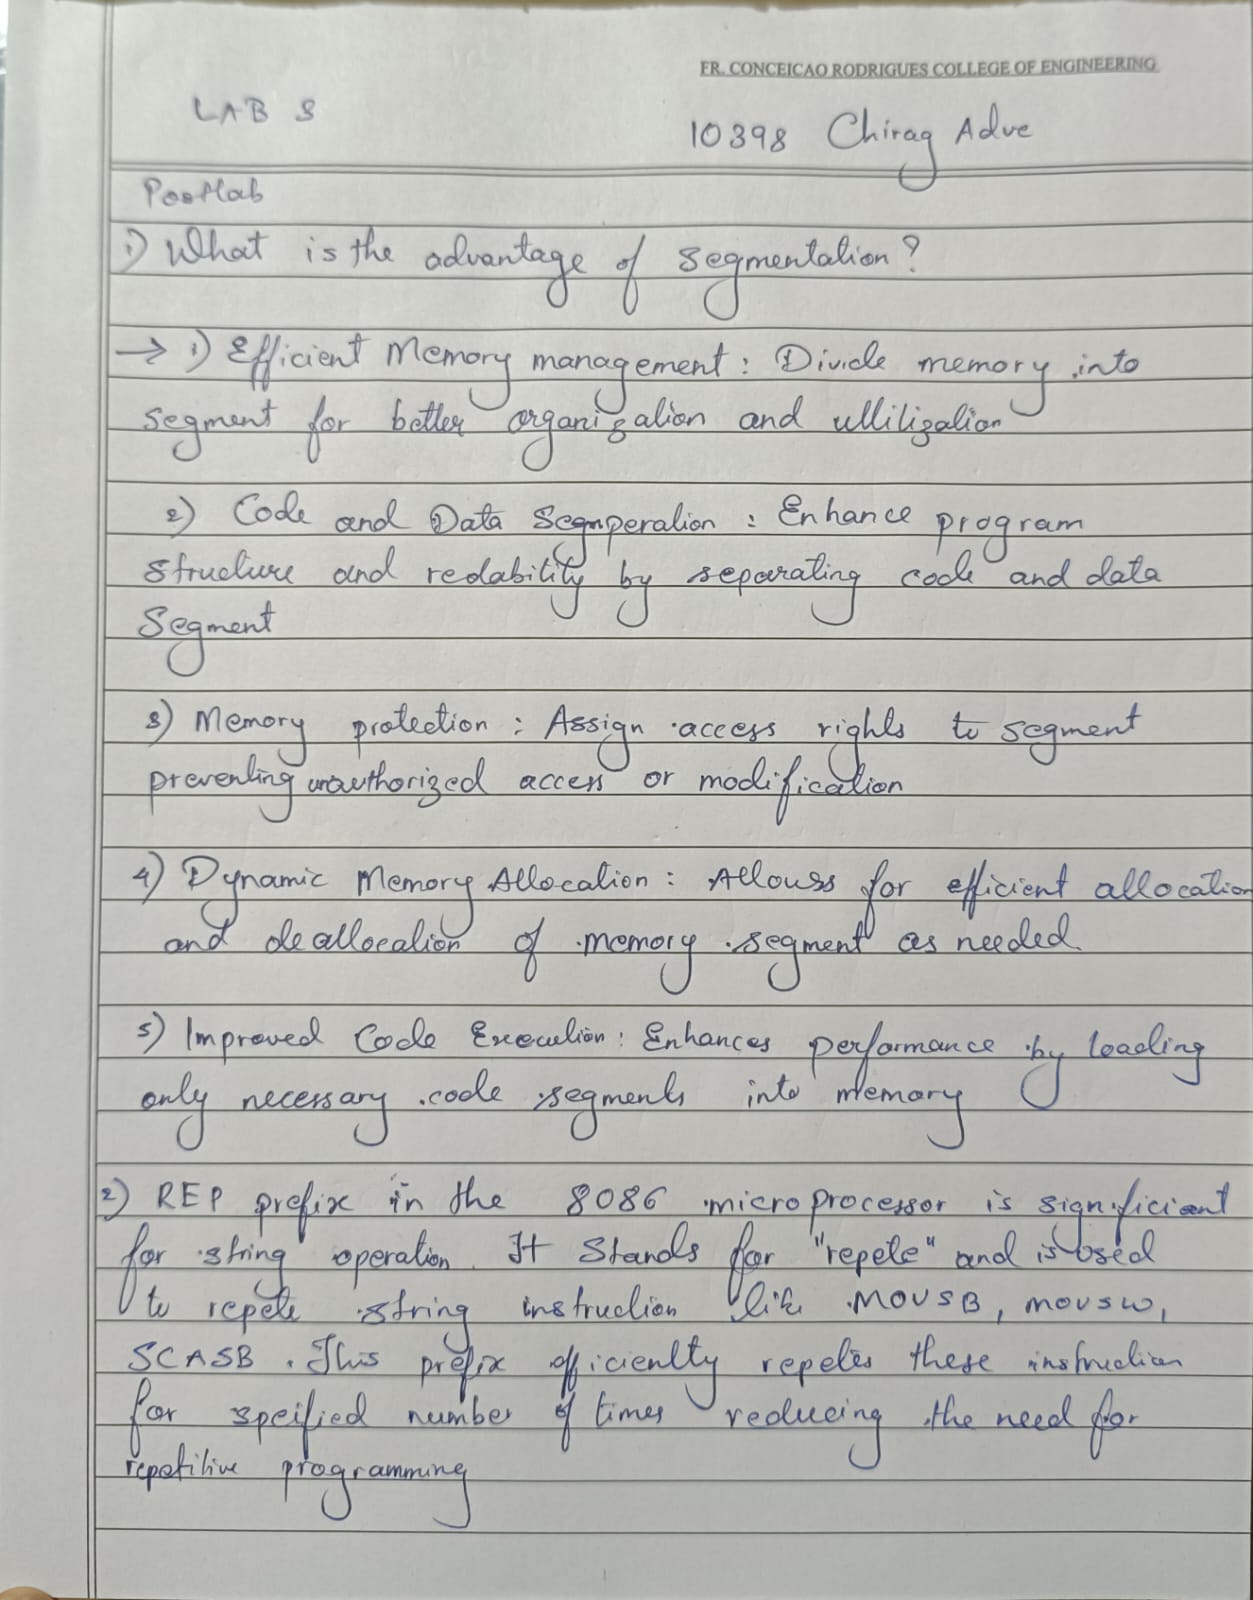 FR. CONCEICAO RODRIGUES COLLEGE OF ENGINEERING
LAB 3
10398 Chirag Adve
Postlab
1) What is the advantage of segmentation?
→ 1) Efficient Memory management : Divide memory into
segment for better organization and utilization
2) Code and Data Segmperation : Enhance program
structure and redability by separating code and data
Segment
3) Memory protection : Assign access rights to segment
preventing unauthorized access or modification
4) Dynamic Memory Allocation : Allouss for efficient allocation
and deallocation of memory segment as needed.
5) Improved Code Execution : Enhances performance by loading
only necessary code segments into memory
2) REP prefix in the 8086 microprocessor is significient
for string operation. It Stands for "repete" and is used
to repete string instruction like MOVSB, MOVSW,
SCASB. This prefix efficienlty repetes these instruction
for speified number of times reducing the need for
repetitive programming